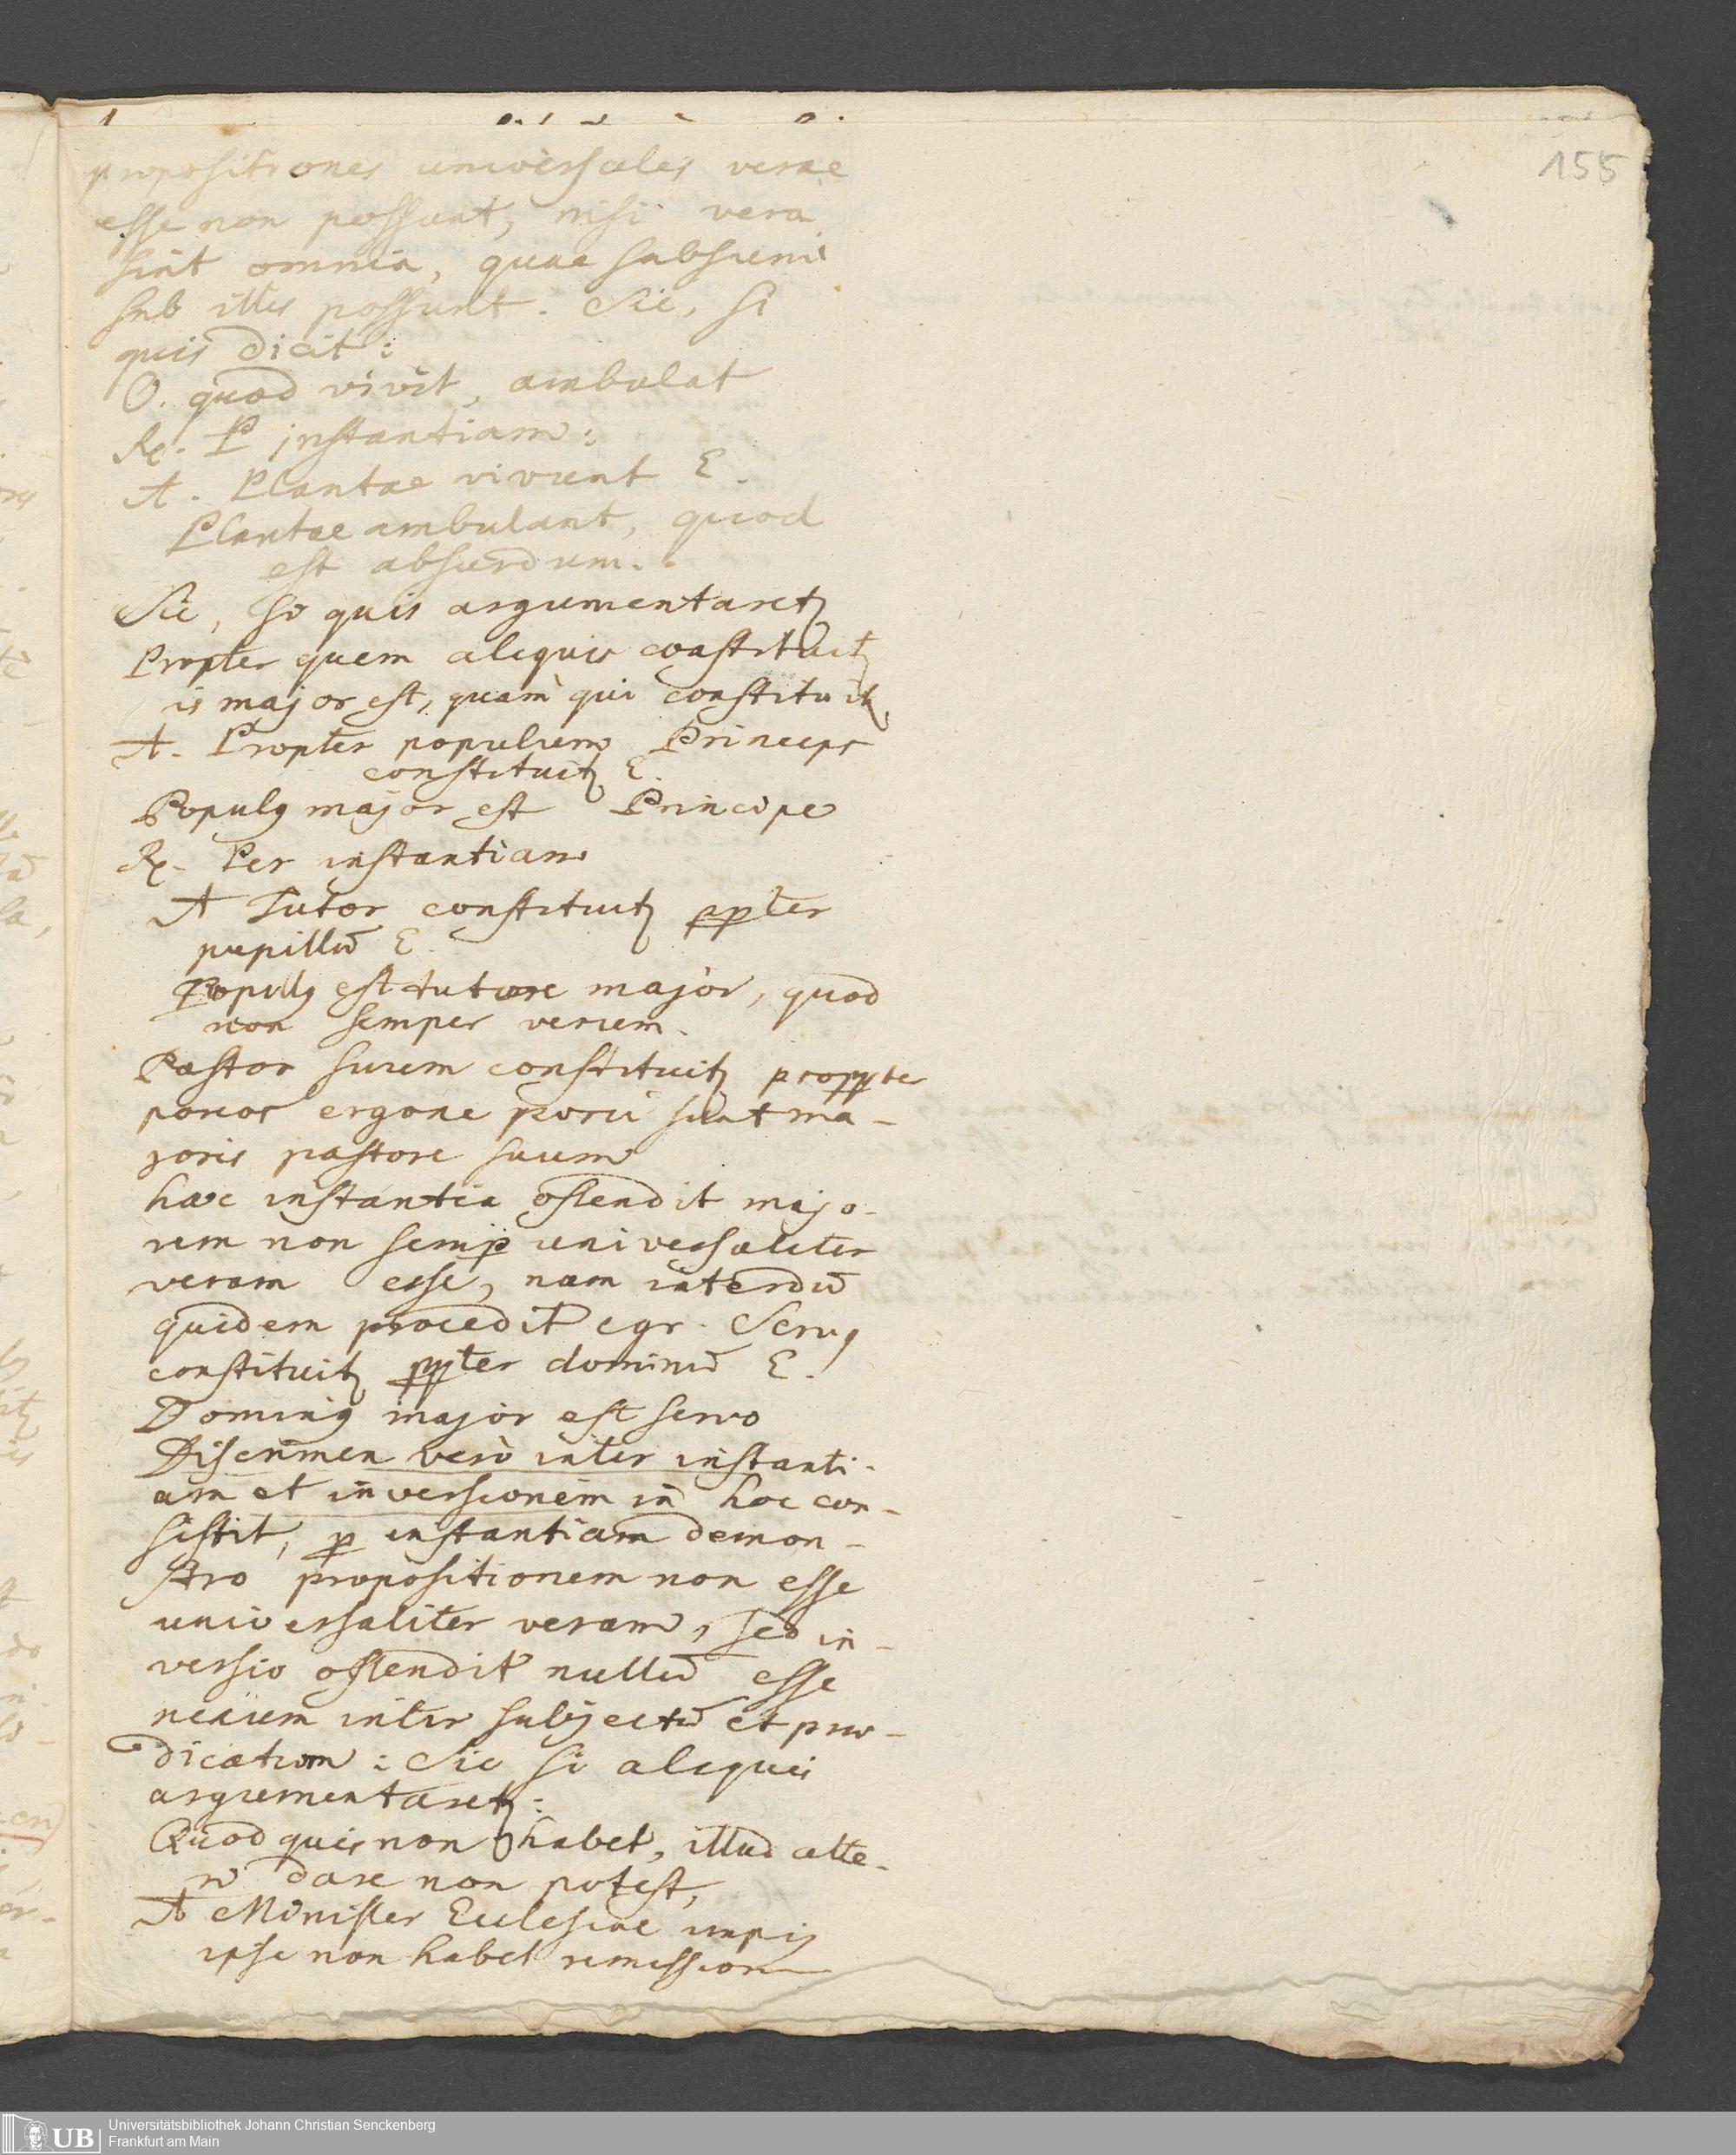 155
propositiones universales verae
esse non possunt, nisi vera
sint omnia, quae subsumi
sub illis possunt. Sic, si
quis dicit:
O. quod vivit, ambulat
Re. P instantiam:
A. Plantae vivunt E.
Plantae ambulant, quod
est absurdum.
Sic, si quis argumentaretr
Propter quem aliquis constituitr
is major est, quàm qui constituitr
A. Propter populum Princeps
constituitr E.
Populg major est Principe
Re. Per instantiam
A Tutor constituitr ppter
pupillū E.
Pupillg est tutore major, quod
non semper verum.
Pastor suum constituitr proppter
porcos ergone porci sunt ma-
joris pastore suum
haec instantia ostendit majo-
rem non semp universaliter
veram esse, nam interdū
quidem procedit egr. Servg
constituitr ppter dominū E.
Doming major est servo
Discrimen verò inter instanti-
am et inversionem in hoc con-
sistit, p instantiam demon-
stro propositionem non esse
universaliter veram, sed in-
versio ostendit nullū esse
nexum inter subjectū et prae-
dicatum: Sic si aliquis
argumentaretr:
Quod quis non habet, illud alte-
ri dare non potest,
A Minister Ecclesiae impig
ipse non habet remission
UB
Universitätsbibliothek Johann Christian Senckenberg
Frankfurt am Main